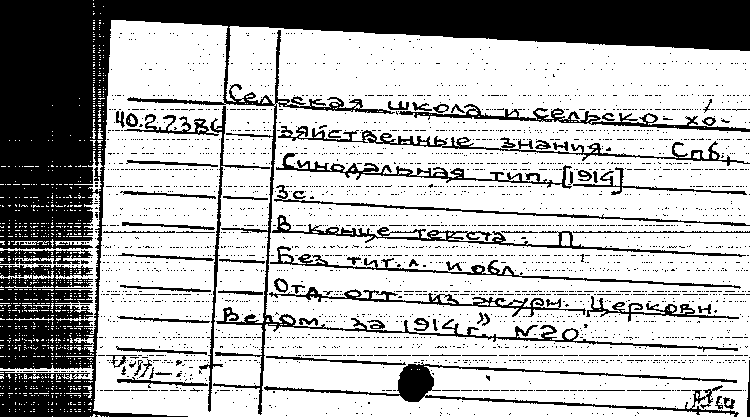 Сельская школа и сельско-хо-
40.2.7.386 зяйственные знания. Спб.,
Синодальная тип., [1914]
3с.
В конце текста: П
Без тит. л. и обл.
Отд. отт. из журн. „Церковн.
Ведом. за 1914г.", №20.